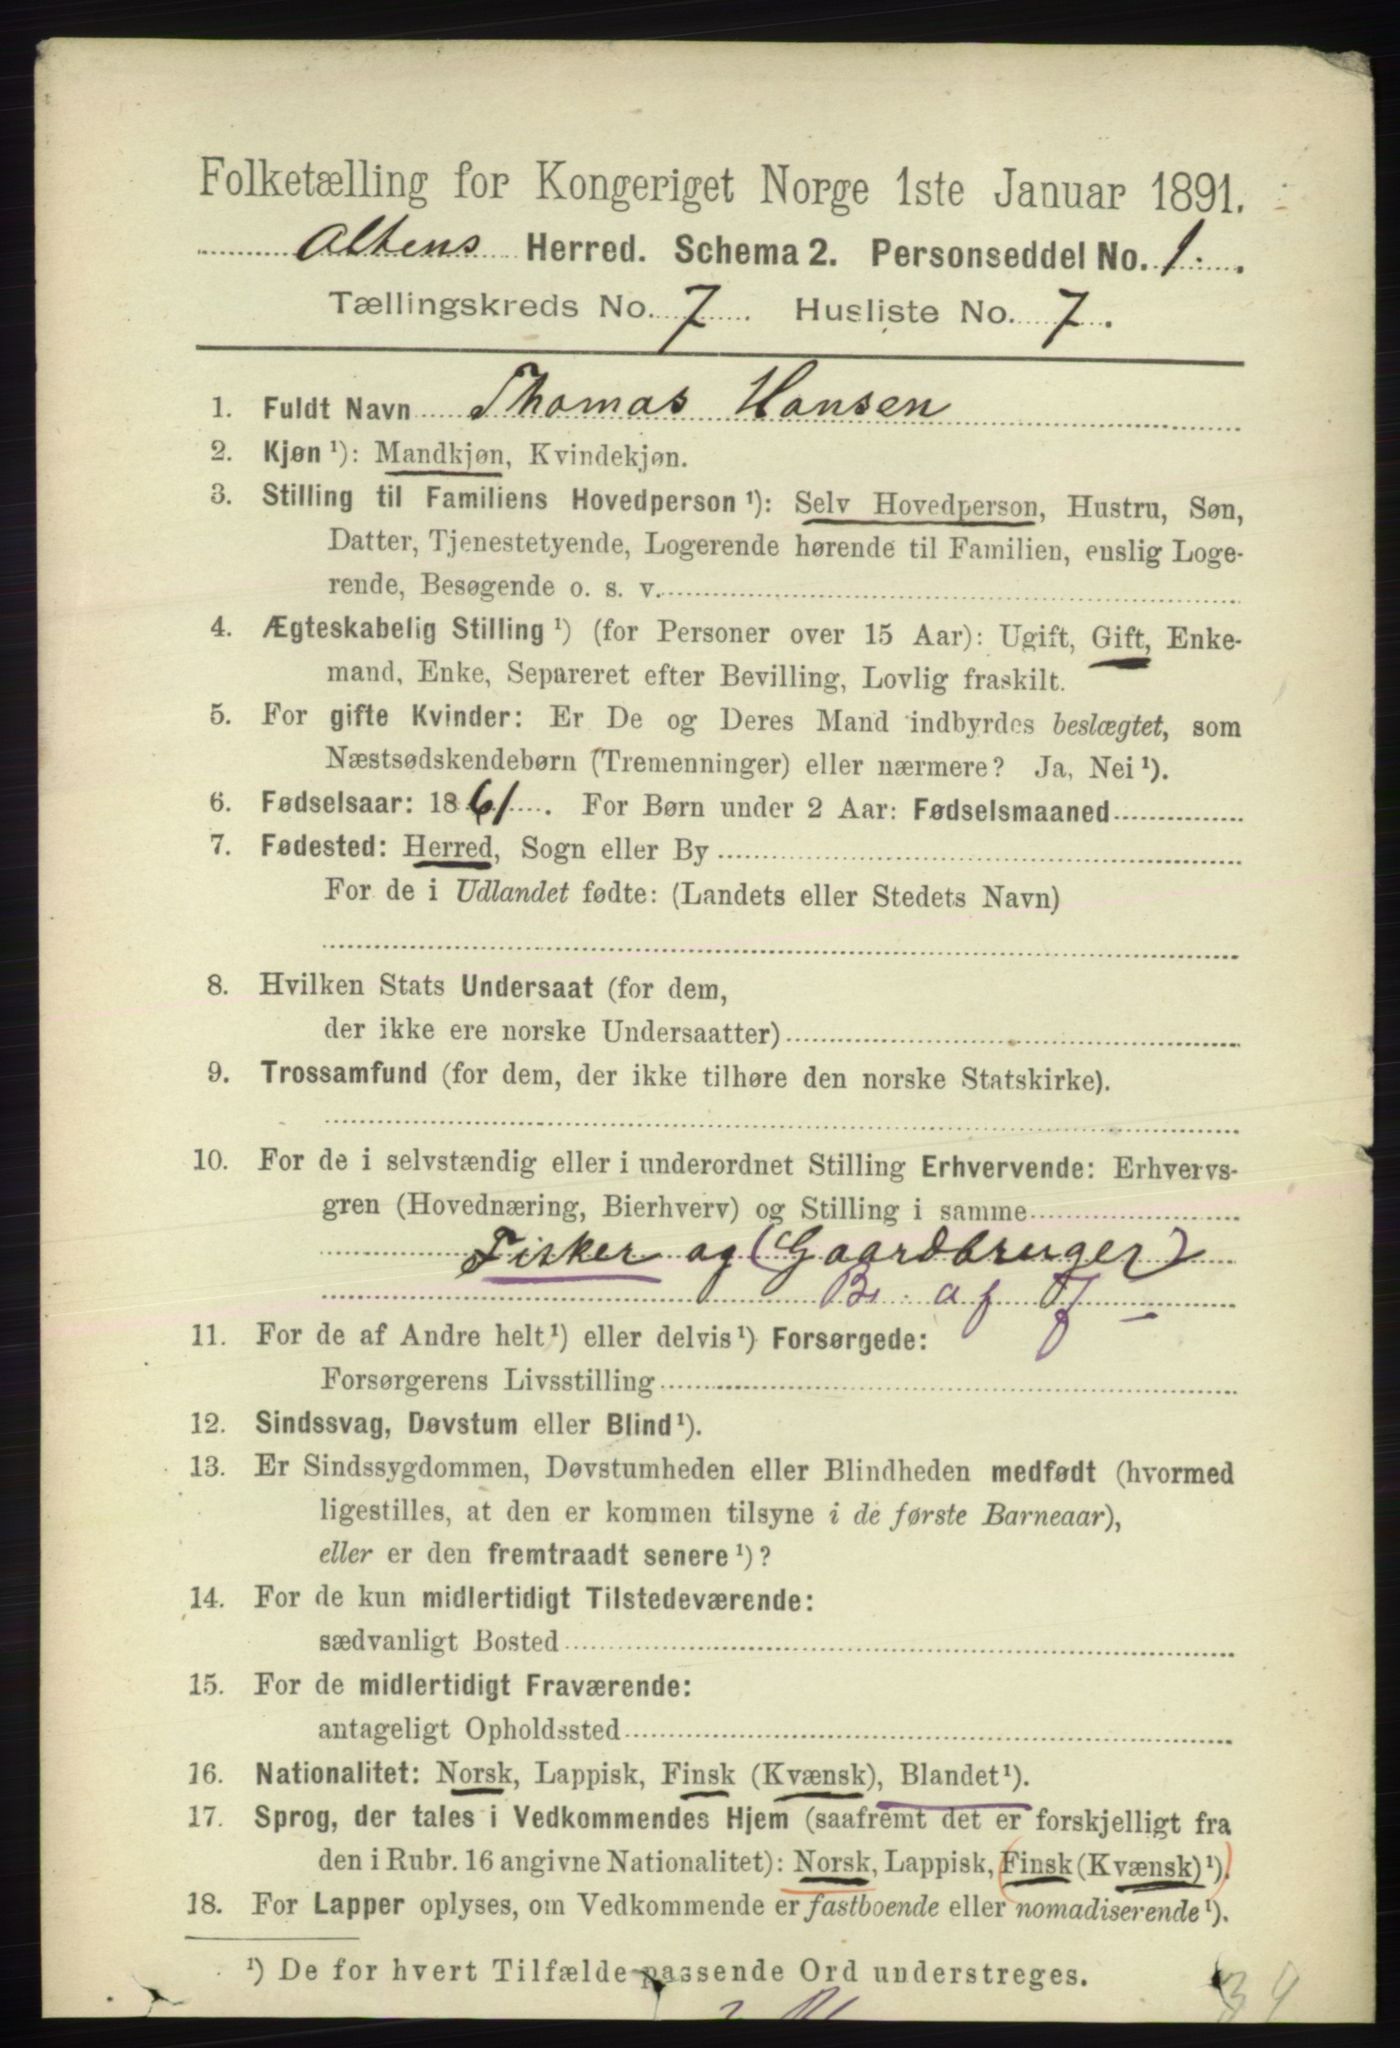 Folketælling for Kongeriget Norge 1ste Januar 1891.
Altens Herred. Schema 2. Personseddel No. 1.
Tællingskreds No. 7 Husliste No. 7.
1. Fuldt Navn Thomas Hansen
2. Kjøn ¹): Mandkjøn, Kvindekjøn.
3. Stilling til Familiens Hovedperson ¹): Selv Hovedperson, Hustru, Søn,
Datter, Tjenestetyende, Logerende hørende til Familien, enslig Loge-
rende, Besøgende o. s. v.
4. Ægteskabelig Stilling ¹) (for Personer over 15 Aar): Ugift, Gift, Enke-
mand, Enke, Separeret efter Bevilling, Lovlig fraskilt.
5. For gifte Kvinder: Er De og Deres Mand indbyrdes beslægtet, som
Næstsødskendebørn (Tremenninger) eller nærmere? Ja, Nei ¹).
6. Fødselsaar: 1861. For Børn under 2 Aar: Fødselsmaaned
7. Fødested: Herred, Sogn eller By
For de i Udlandet fødte: (Landets eller Stedets Navn)
8. Hvilken Stats Undersaat (for dem,
der ikke ere norske Undersaatter)
9. Trossamfund (for dem, der ikke tilhøre den norske Statskirke).
10. For de i selvstændig eller i underordnet Stilling Erhvervende: Erhvervs-
gren (Hovednæring, Bierhverv) og Stilling i samme
Fisker og (Gaardbruger)
B. af J
11. For de af Andre helt ¹) eller delvis ¹) Forsørgede:
Forsørgerens Livsstilling
12. Sindssvag, Døvstum eller Blind ¹).
13. Er Sindssygdommen, Døvstumheden eller Blindheden medfødt (hvormed
ligestilles, at den er kommen tilsyne i de første Barneaar),
eller er den fremtraadt senere ¹)?
14. For de kun midlertidigt Tilstedeværende:
sædvanligt Bosted
15. For de midlertidigt Fraværende:
antageligt Opholdssted
16. Nationalitet: Norsk, Lappisk, Finsk (Kvænsk), Blandet ¹).
17. Sprog, der tales i Vedkommendes Hjem (saafremt det er forskjelligt fra
den i Rubr. 16 angivne Nationalitet): Norsk, Lappisk, Finsk (Kvænsk) ¹).
18. For Lapper oplyses, om Vedkommende er fastboende eller nomadiserende ¹).
¹) De for hvert Tilfælde passende Ord understreges.
39